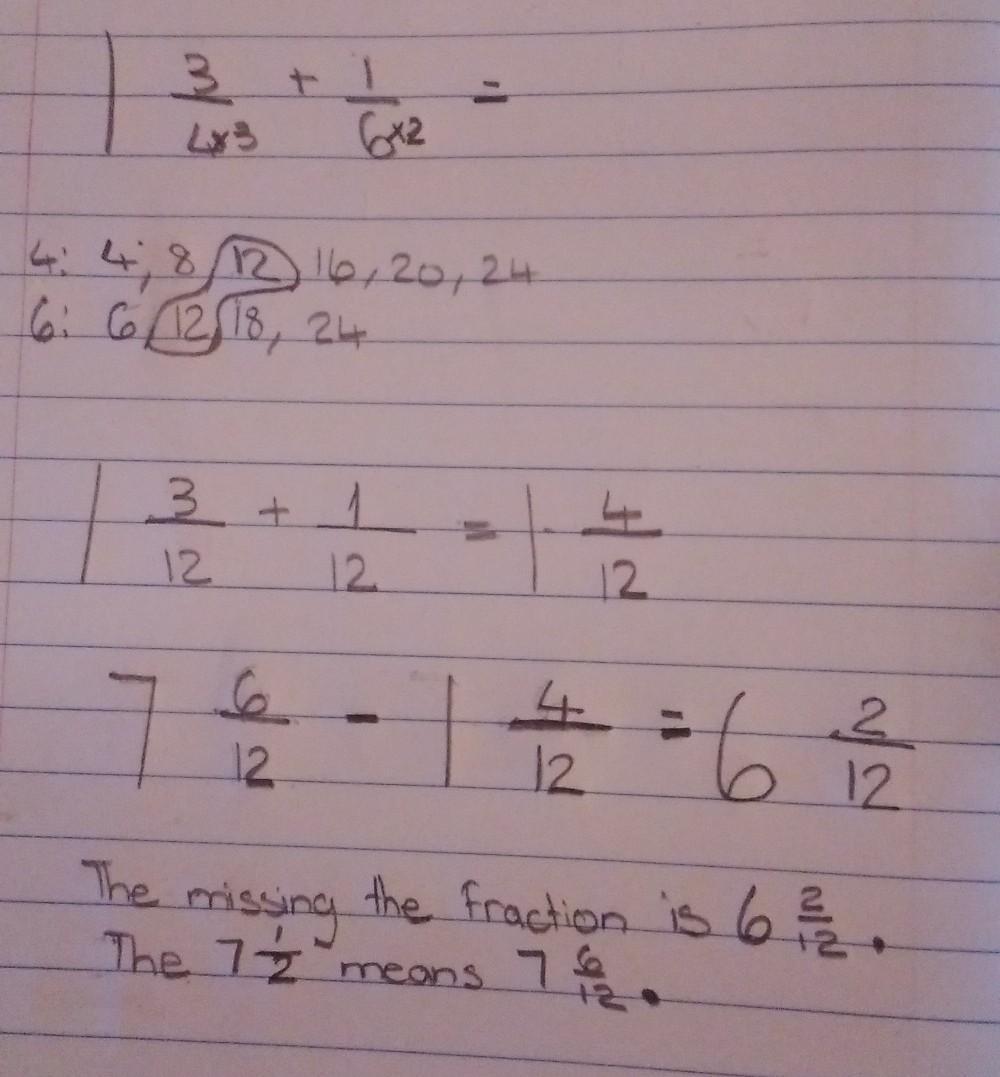 1 3/4×3 + 1/6×2 =
4: 4, 8 12 16, 20, 24
6: 6 12 18, 24
1 3/12 + 1/12 = 1 4/12
7 6/12 - 1 4/12 = 6 2/12
The missing the fraction is 6 2/12.
The 7 1/2 means 7 6/12.